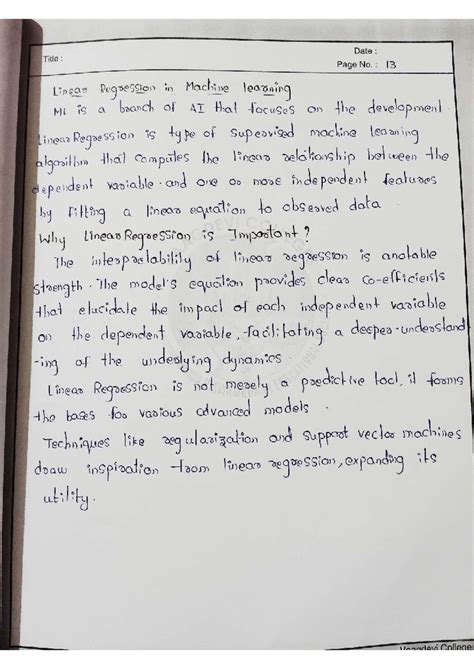 Title :
Date :
Page No. : 13
Linear Regression in Machine learning
ML is a branch of AI that focuses on the development.
Linear Regression is type of Supervised machine learning
algorithm that computes the linear relationship between the
dependent variable and one or more independent features
by fitting a linear equation to observed data
Why Linear Regression is Important ?
The interpretability of linear regression is a notable
strength. The model's equation provides clear co-efficients
that elucidate the impact of each independent variable
on the dependent variable, facilitating a deeper understand
-ing of the underlying dynamics.
Linear Regression is not merely a predictive tool, it forms
the bases for various advanced models.
Techniques like regularization and support vector machines
draw inspiration from linear regression, expanding its
utility.
Vaagdevi College